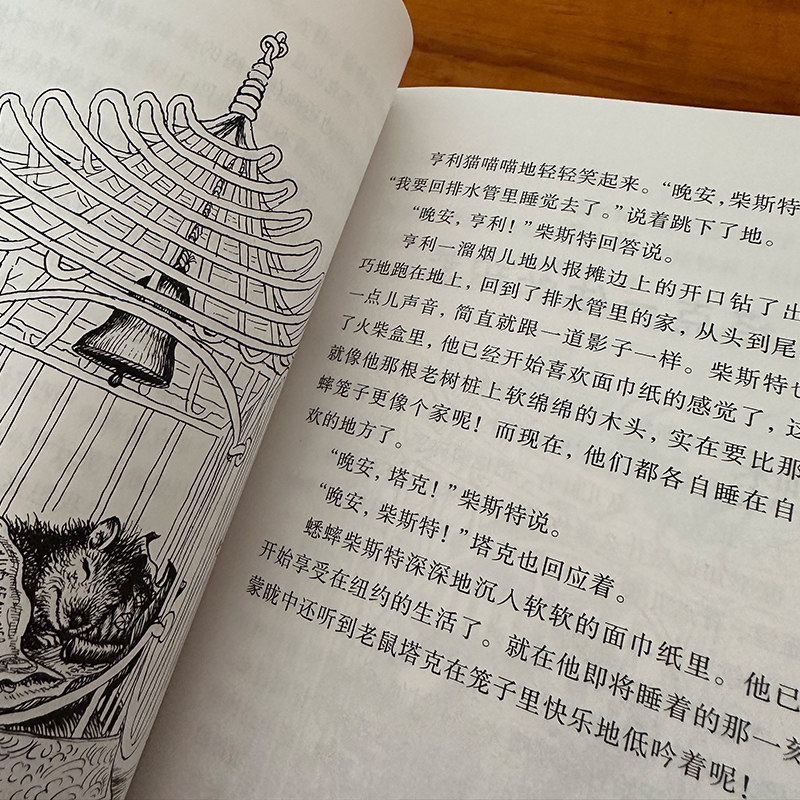 亨利猫喵喵地轻轻笑起来。“晚安，柴斯特
“我要回排水管里睡觉去了。”说着跳下了地。
“晚安，亨利！”柴斯特回答说。
亨利一溜烟儿地从报摊边上的开口钻了出
巧地跑在地上，回到了排水管里的家，从头到尾
一点儿声音，简直就跟一道影子一样。柴斯特也
了火柴盒里，他已经开始喜欢面巾纸的感觉了，这
就像他那根老树桩上软绵绵的木头，实在要比那
蟀笼子更像个家呢！而现在，他们都各自睡在自
欢的地方了。
“晚安，塔克！”柴斯特说。
“晚安，柴斯特！”塔克也回应着。
蟋蟀柴斯特深深地沉入软软的面巾纸里。他已
开始享受在纽约的生活了。就在他即将睡着的那一刻
蒙胧中还听到老鼠塔克在笼子里快乐地低吟着呢！